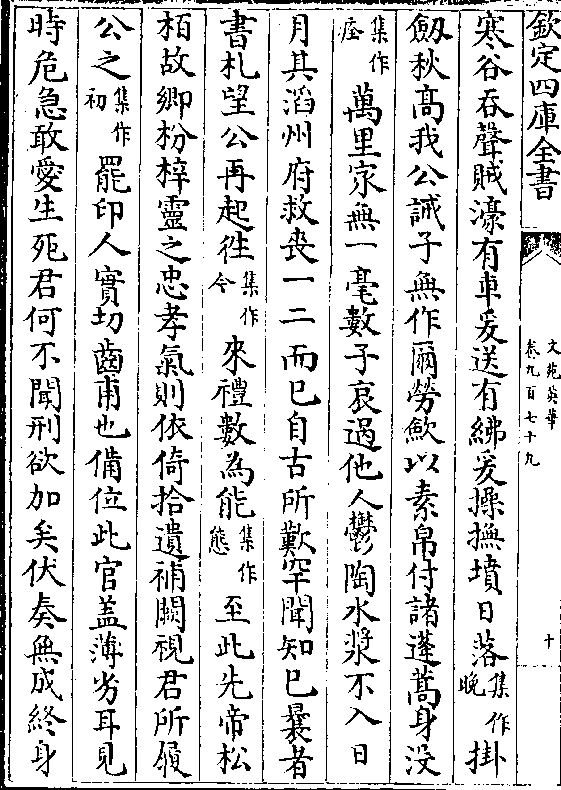 欽定四庫全書
文苑英華
卷九百七十九
十
寒谷吞聲賊濠有車爰送有紼爰操撫墳日落集作晚掛
劔秋髙我公誡子無作爾勞斂以素帛付諸蓬蒿身沒
集作瘞萬里家無一毫數子哀過他人鬱陶水漿不入日
月其滔州府救喪一二而已自古所歎罕聞知已曩者
書札望公再起徃集作今來禮數為能集作態至此先帝松
栢故鄉枌梓靈之忠孝氣則依倚拾遺補闕視君所履
公之集作初罷印人實切齒甫也備位此官盖薄劣耳見
時危急敢愛生死君何不聞刑欲加矣伏奏無成終身